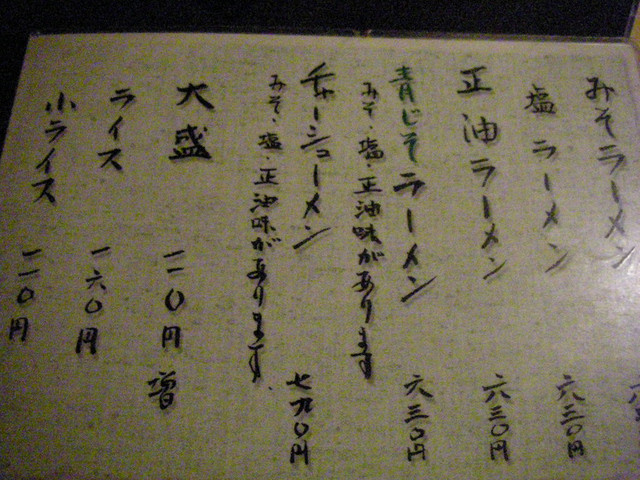 みそラーメン 六
塩ラーメン 六三〇円
正油ラーメン 六三〇円
青じそラーメン 六三〇円
みそ・塩・正油味があります
チャーシューメン 七九〇円
みそ・塩・正油味があります。
大盛 一一〇円増
ライス 一六〇円
小ライス 一一〇円